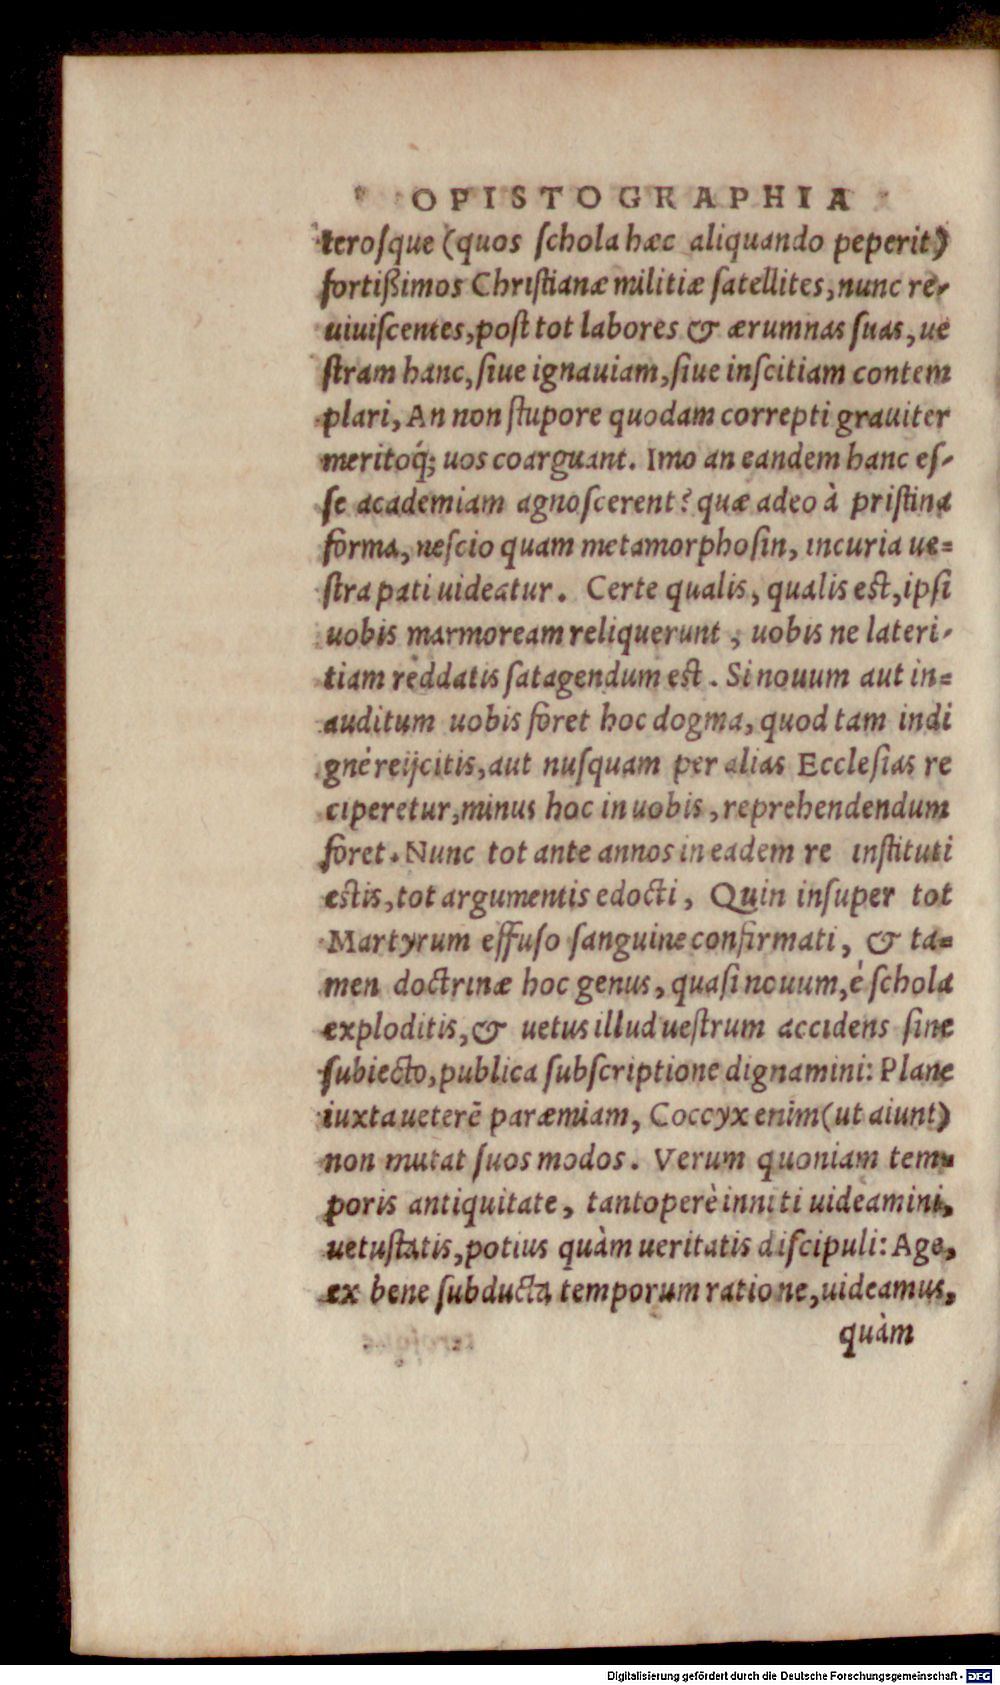 OPISTOGRAPHIA
terosque (quos schola hæc aliquando peperit)
fortißimos Christianæ militiæ satellites, nunc re-
uiuiscentes, post tot labores & ærumnas suas, ue
stram hanc, siue ignauiam, siue inscitiam contem
plari, An non stupore quodam correpti grauiter
meritoq́; uos coarguant. Imo an eandem hanc es-
se academiam agnoscerent? quæ adeo à pristina
forma, nescio quam metamorphosin, incuria ue=
stra pati uideatur. Certe qualis, qualis est, ipsi
uobis marmoream reliquerunt, uobis ne lateri-
tiam reddatis satagendum est. Si nouum aut in=
auditum uobis foret hoc dogma, quod tam indi
gné reijcitis, aut nusquam per alias Ecclesias re
ciperetur, minus hoc in uobis, reprehendendum
foret. Nunc tot ante annos in eadem re instituti
estis, tot argumentis edocti, Quin insuper tot
Martyrum effuso sanguine confirmati, & ta=
men doctrinæ hoc genus, quasi nouum, é schola
exploditis, & uetus illud uestrum accidens sine
subiecto, publica subscriptione dignamini: Plane
iuxta ueterē paræmiam, Coccyx enim (ut aiunt)
non mutat suos modos. Verum quoniam tem=
poris antiquitate, tantoperè inniti uideamini,
uetustatis, potius quàm ueritatis discipuli: Age,
ex bene subducta temporum ratione, uideamus,
quàm
Digitalisierung gefördert durch die Deutsche Forschungsgemeinschaft - DFG